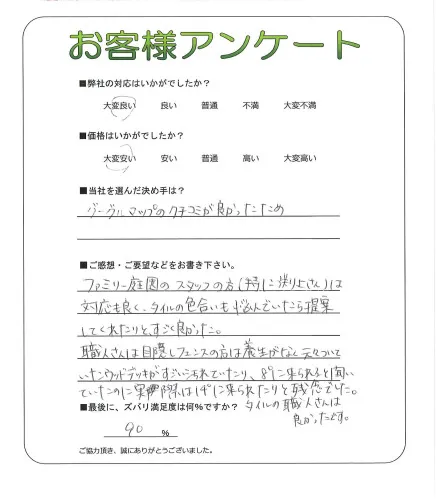 お客様アンケート
■弊社の対応はいかがでしたか？
大変良い 良い 普通 不満 大変不満
■価格はいかがでしたか？
大変安い 安い 普通 高い 大変高い
■当社を選んだ決め手は？
グーグルマップのクチコミが良かったため
■ご感想・ご要望などをお書き下さい。
ファミリー庭園のスタッフの方(特に渕上さん)は
対応も良く、タイルの色合いも悩んでいたら提案
してくれたりと、すごく良かった。
職人さんは目隠しフェンスの方は養生がなく元々ついて
いたウッドデッキがすごい
ていたのに実際は
に来られたりと残念でした。
■最後に、ズバリ満足度は何％ですか？
タイルの職人さんは
良かったです。
90 ％
ご協力頂き、誠にありがとうございました。